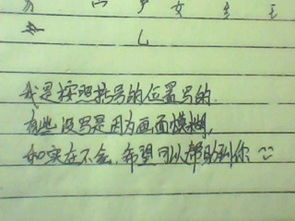 我是按照括号的位置写的.
有些没写是因为画面模糊,
如实在不会.希望可以帮助到你